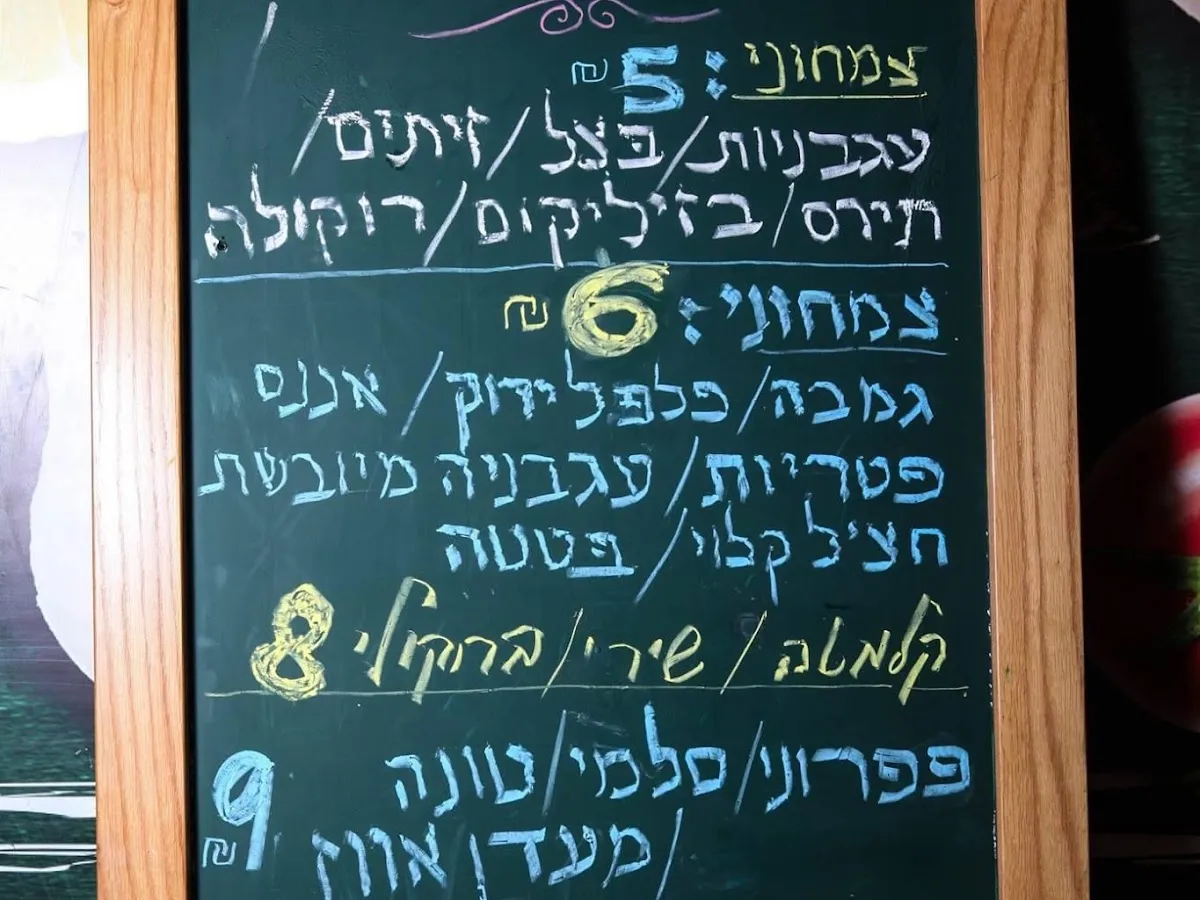 צמחוני: 5 ₪
עגבניות/בצל/זיתים/
תירס/בזיליקום/רוקולה
צמחוני: 6 ₪
גמבה/פלפל ירוק/אננס
פטריות/עגבניה מיובשת
חציל קלוי/בטטה
קלמטה/שירי/ברוקולי 8
פפרוני/סלמי/טונה
/מעדן אווז 9 ₪